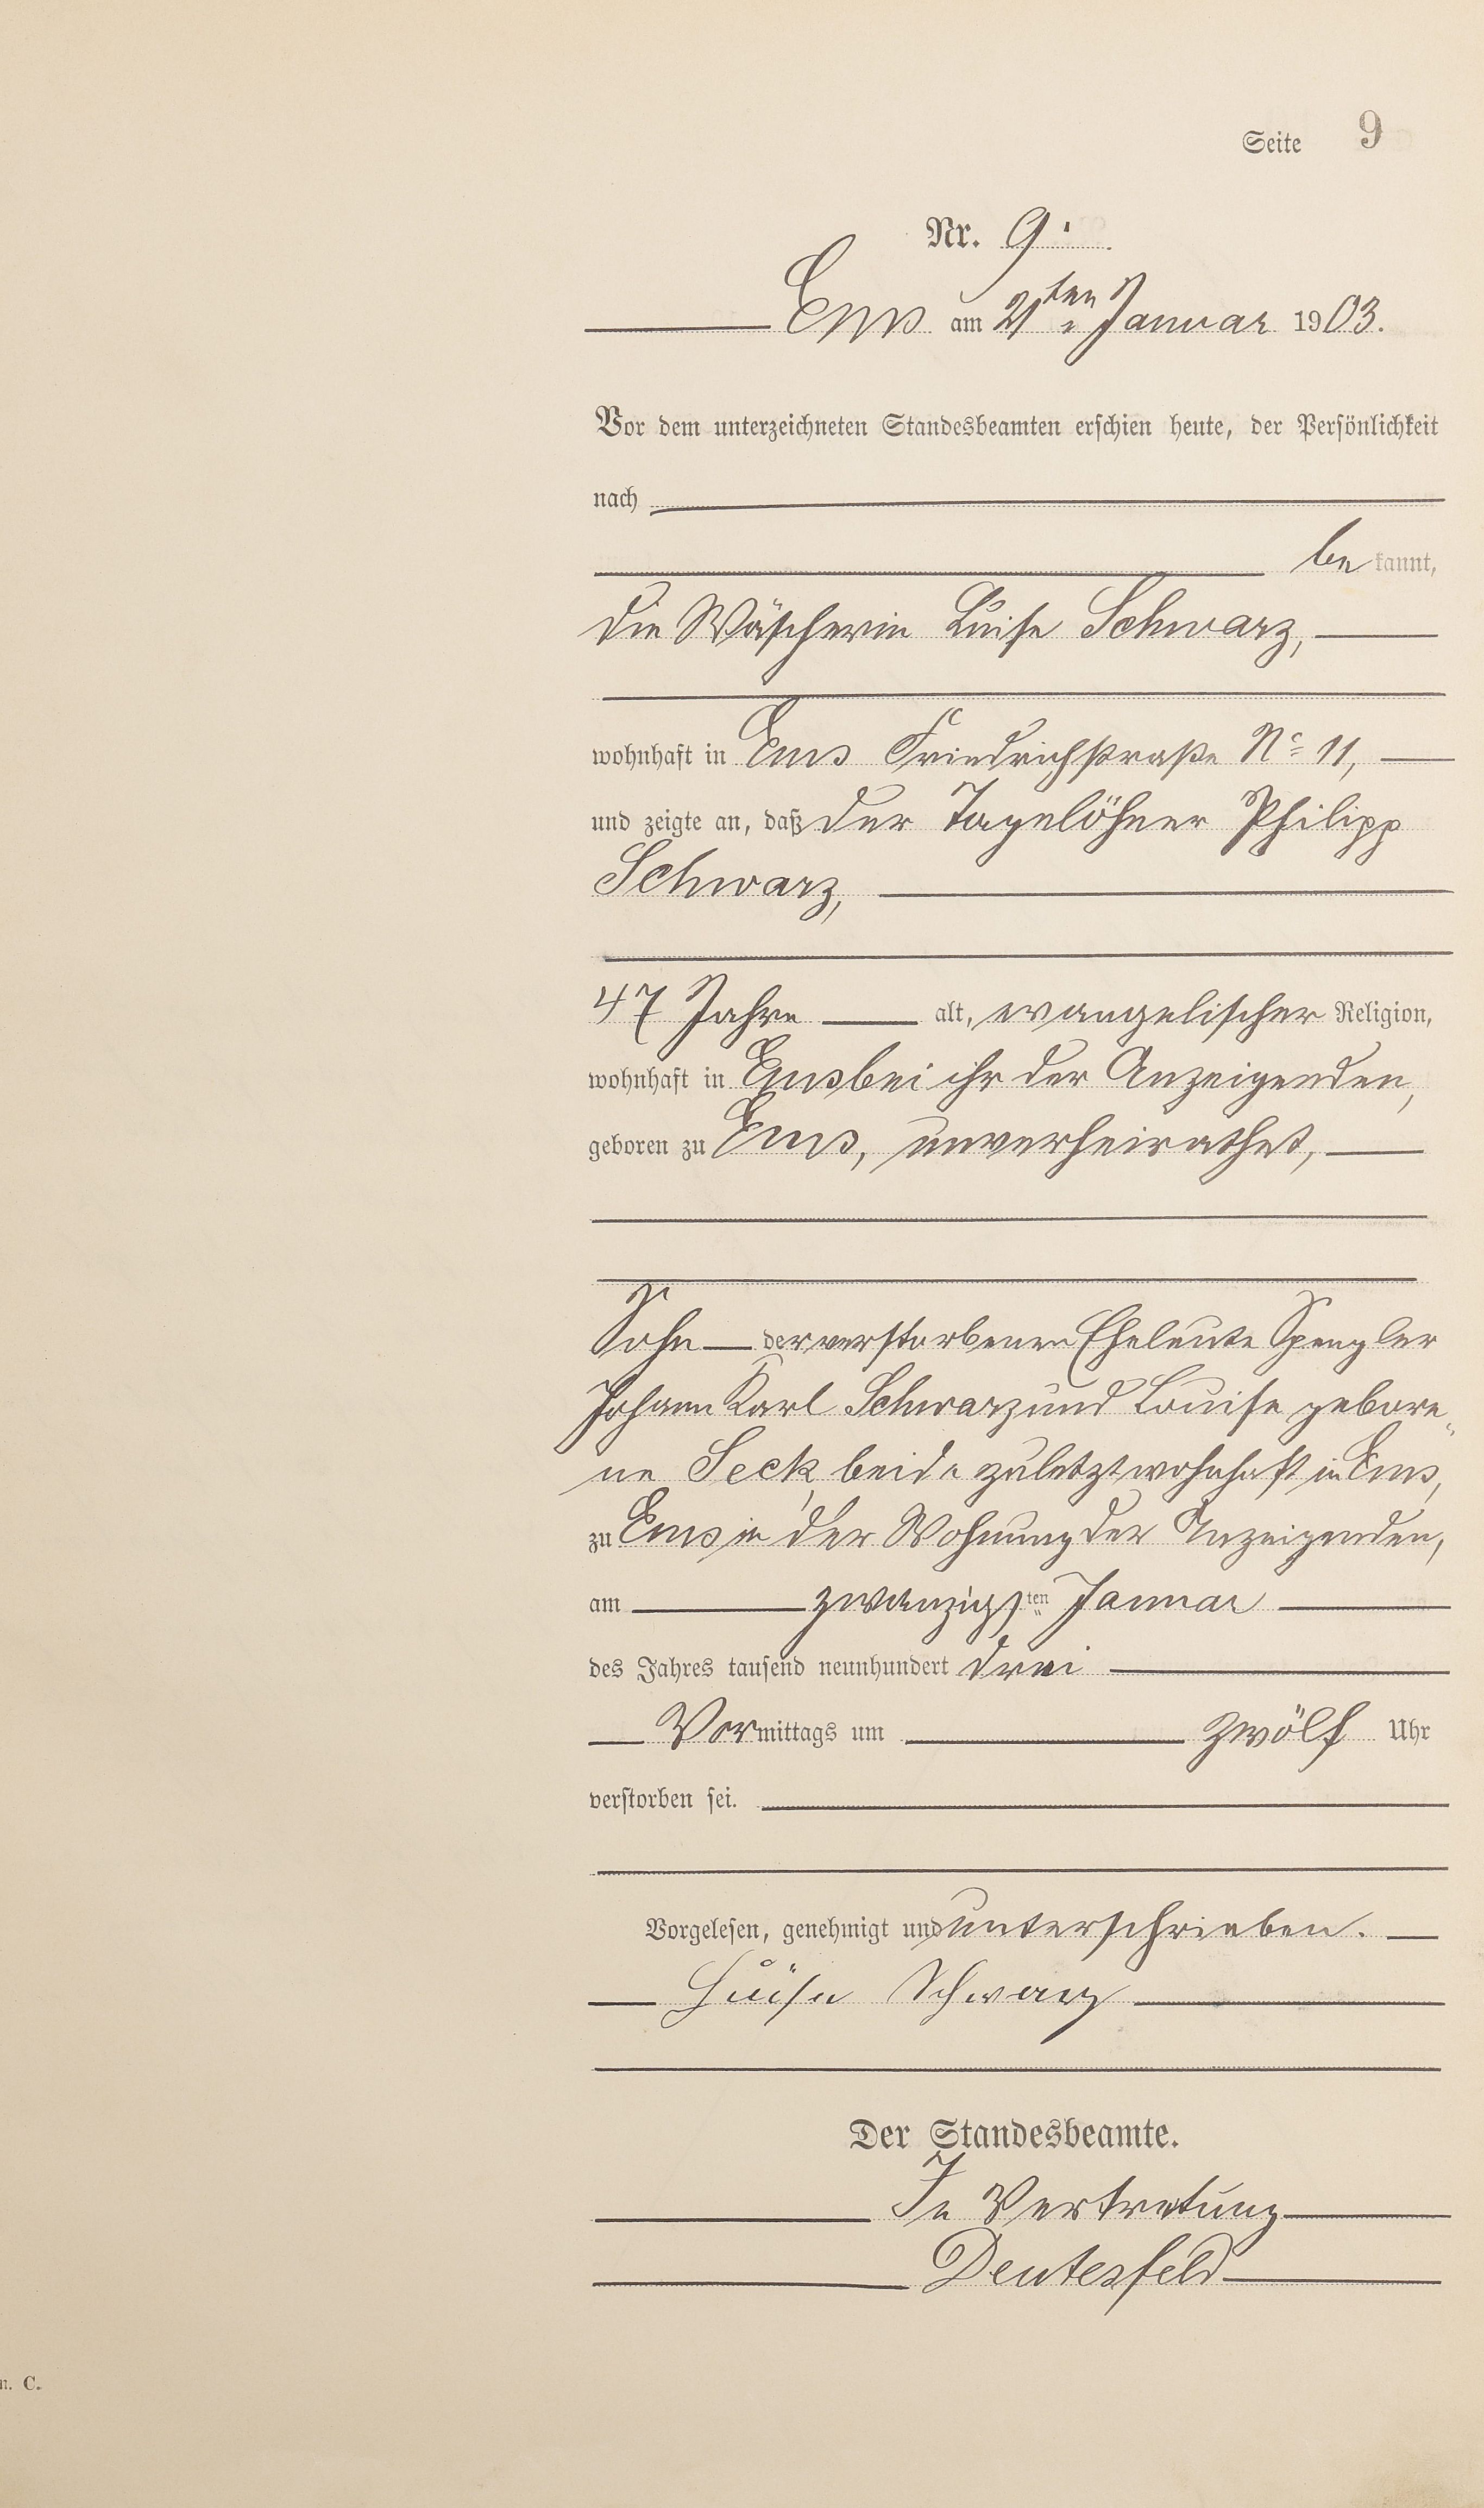 Seite 9
Nr. 9.
Ems am 21ten Januar 1903.
Vor dem unterzeichneten Standesbeamten erschien heute, der Persönlichkeit
nach
bekannt,
die Wäscherin Luise Schwarz,
wohnhaft in Ems Friedrichstraße No 11,
und zeigte an, daß der Tagelöhner Philipp
Schwarz,
47 Jahre alt, evangelischer Religion,
wohnhaft in Ems bei ihr der Anzeigenden,
geboren zu Ems, unverheirathet,
Sohn der verstorbenen Eheleute Spengler
Johann Karl Schwarz und Louise gebore„
ne Seck, beide zuletzt wohnhaft in Ems,
zu Ems in der Wohnung der Anzeigenden,
am zwanzigsten Januar
des Jahres tausend neunhundert drei
Vormittags um zwölf Uhr
verstorben sei.
Vorgelesen, genehmigt und unterschrieben.
Luise Schwarz
Der Standesbeamte.
In Vertretung
Deutesfeld
n. C.